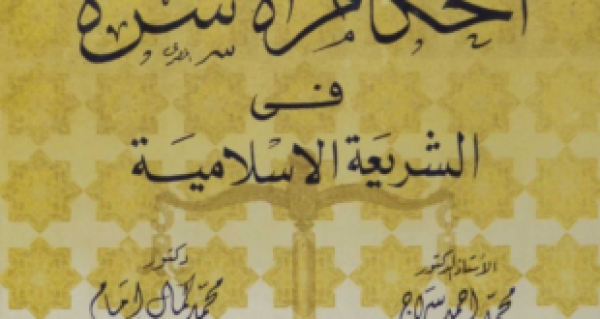 أحكام الأسرة
فى
الشريعة الاسلامية
الأستاذ الدكتور
محمد احمد سراج
دكتور
محمد كمال امام